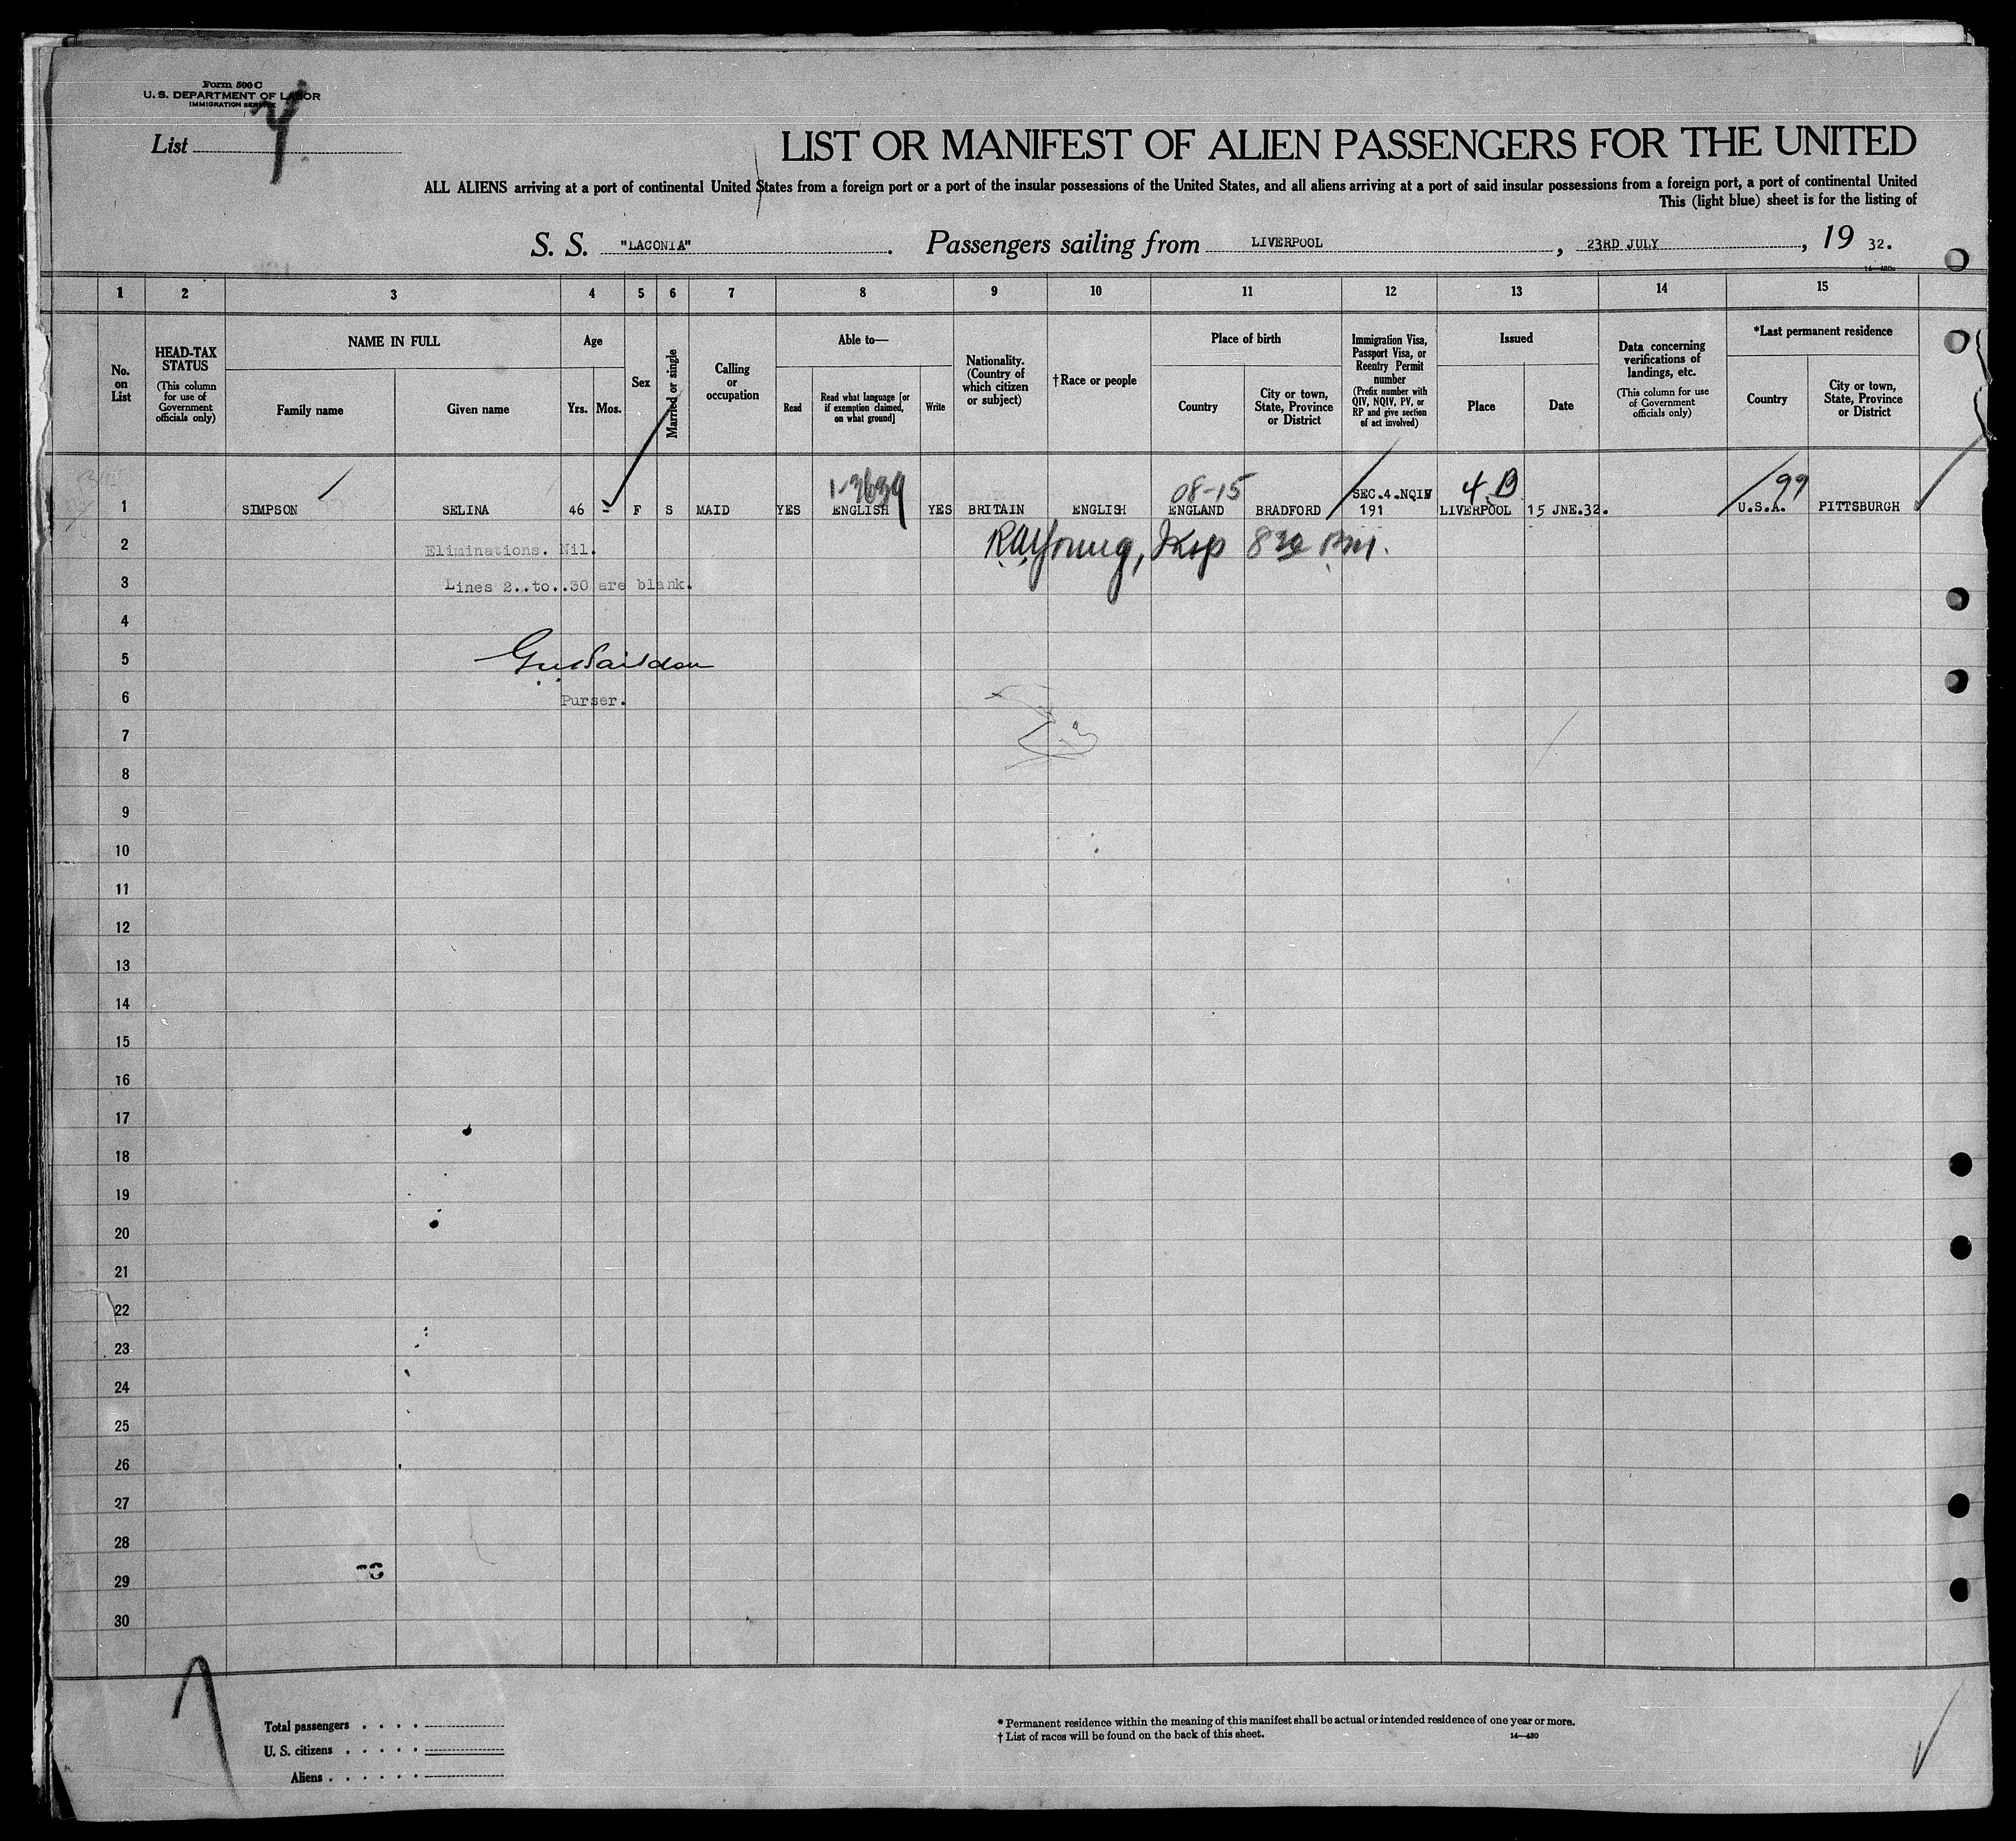 Form 500 C
U. S. DEPARTMENT OF LABOR
IMMIGRATION SERVICE
List
LIST OR MANIFEST OF ALIEN PASSENGERS FOR THE UNITED
ALL ALIENS arriving at a port of continental United States from a foreign port or a port of the insular possessions of the United States, and all aliens arriving at a port of said insular possessions from a foreign port, a port of continental United
This (light blue) sheet is for the listing of
S. S. "LACONIA". Passengers sailing from LIVERPOOL, 23RD JULY, 19 32.
14—430a
1 2 3 4 5 6 7 8 9 10 11 12 13 14 15
No. on List
HEAD-TAX STATUS
(This column for use of Government officials only)
NAME IN FULL
Family name Given name
Age
Yrs. Mos.
Sex
Married or single
Calling or occupation
Able to—
Read
Read what language [or if exemption claimed, on what ground]
Write
Nationality. (Country of which citizen or subject)
†Race or people
Place of birth
Country
City or town, State, Province or District
Immigration Visa, Passport Visa, or Reentry Permit number
(Prefix number with QIV, NQIV, PV, or RP and give section of act involved)
Issued
Place Date
Data concerning verifications of landings, etc.
(This column for use of Government officials only)
*Last permanent residence
Country
City or town, State, Province or District
08-15 SEC.4.NQIV 99
1 SIMPSON SELINA 46 - F S MAID YES ENGLISH YES BRITAIN ENGLISH ENGLAND BRADFORD 191 LIVERPOOL 15 JNE.32. U.S.A. PITTSBURGH
2 Eliminations. Nil.
3 Lines 2..to..30 are blank.
4
5
6 Purser.
7
8
9
10
11
12
13
14
15
16
17
18
19
20
21
22
23
24
25
26
27
28
29
30
Total passengers
U. S. citizens
Aliens
* Permanent residence within the meaning of this manifest shall be actual or intended residence of one year or more.
† List of races will be found on the back of this sheet.
14—430